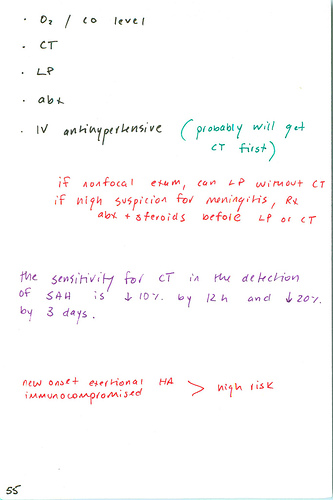 · O₂ / CO level
· CT
· LP
· abx
· IV antihypertensive (probably will get
CT first)
if nonfocal exam, can LP without CT
if high suspicion for meningitis, Rx
abx + steroids before LP or CT
the sensitivity for CT in the detection
of SAH is ↓10% by 12h and ↓20%
by 3 days.
new onset exertional HA
immunocompromised > high risk
55